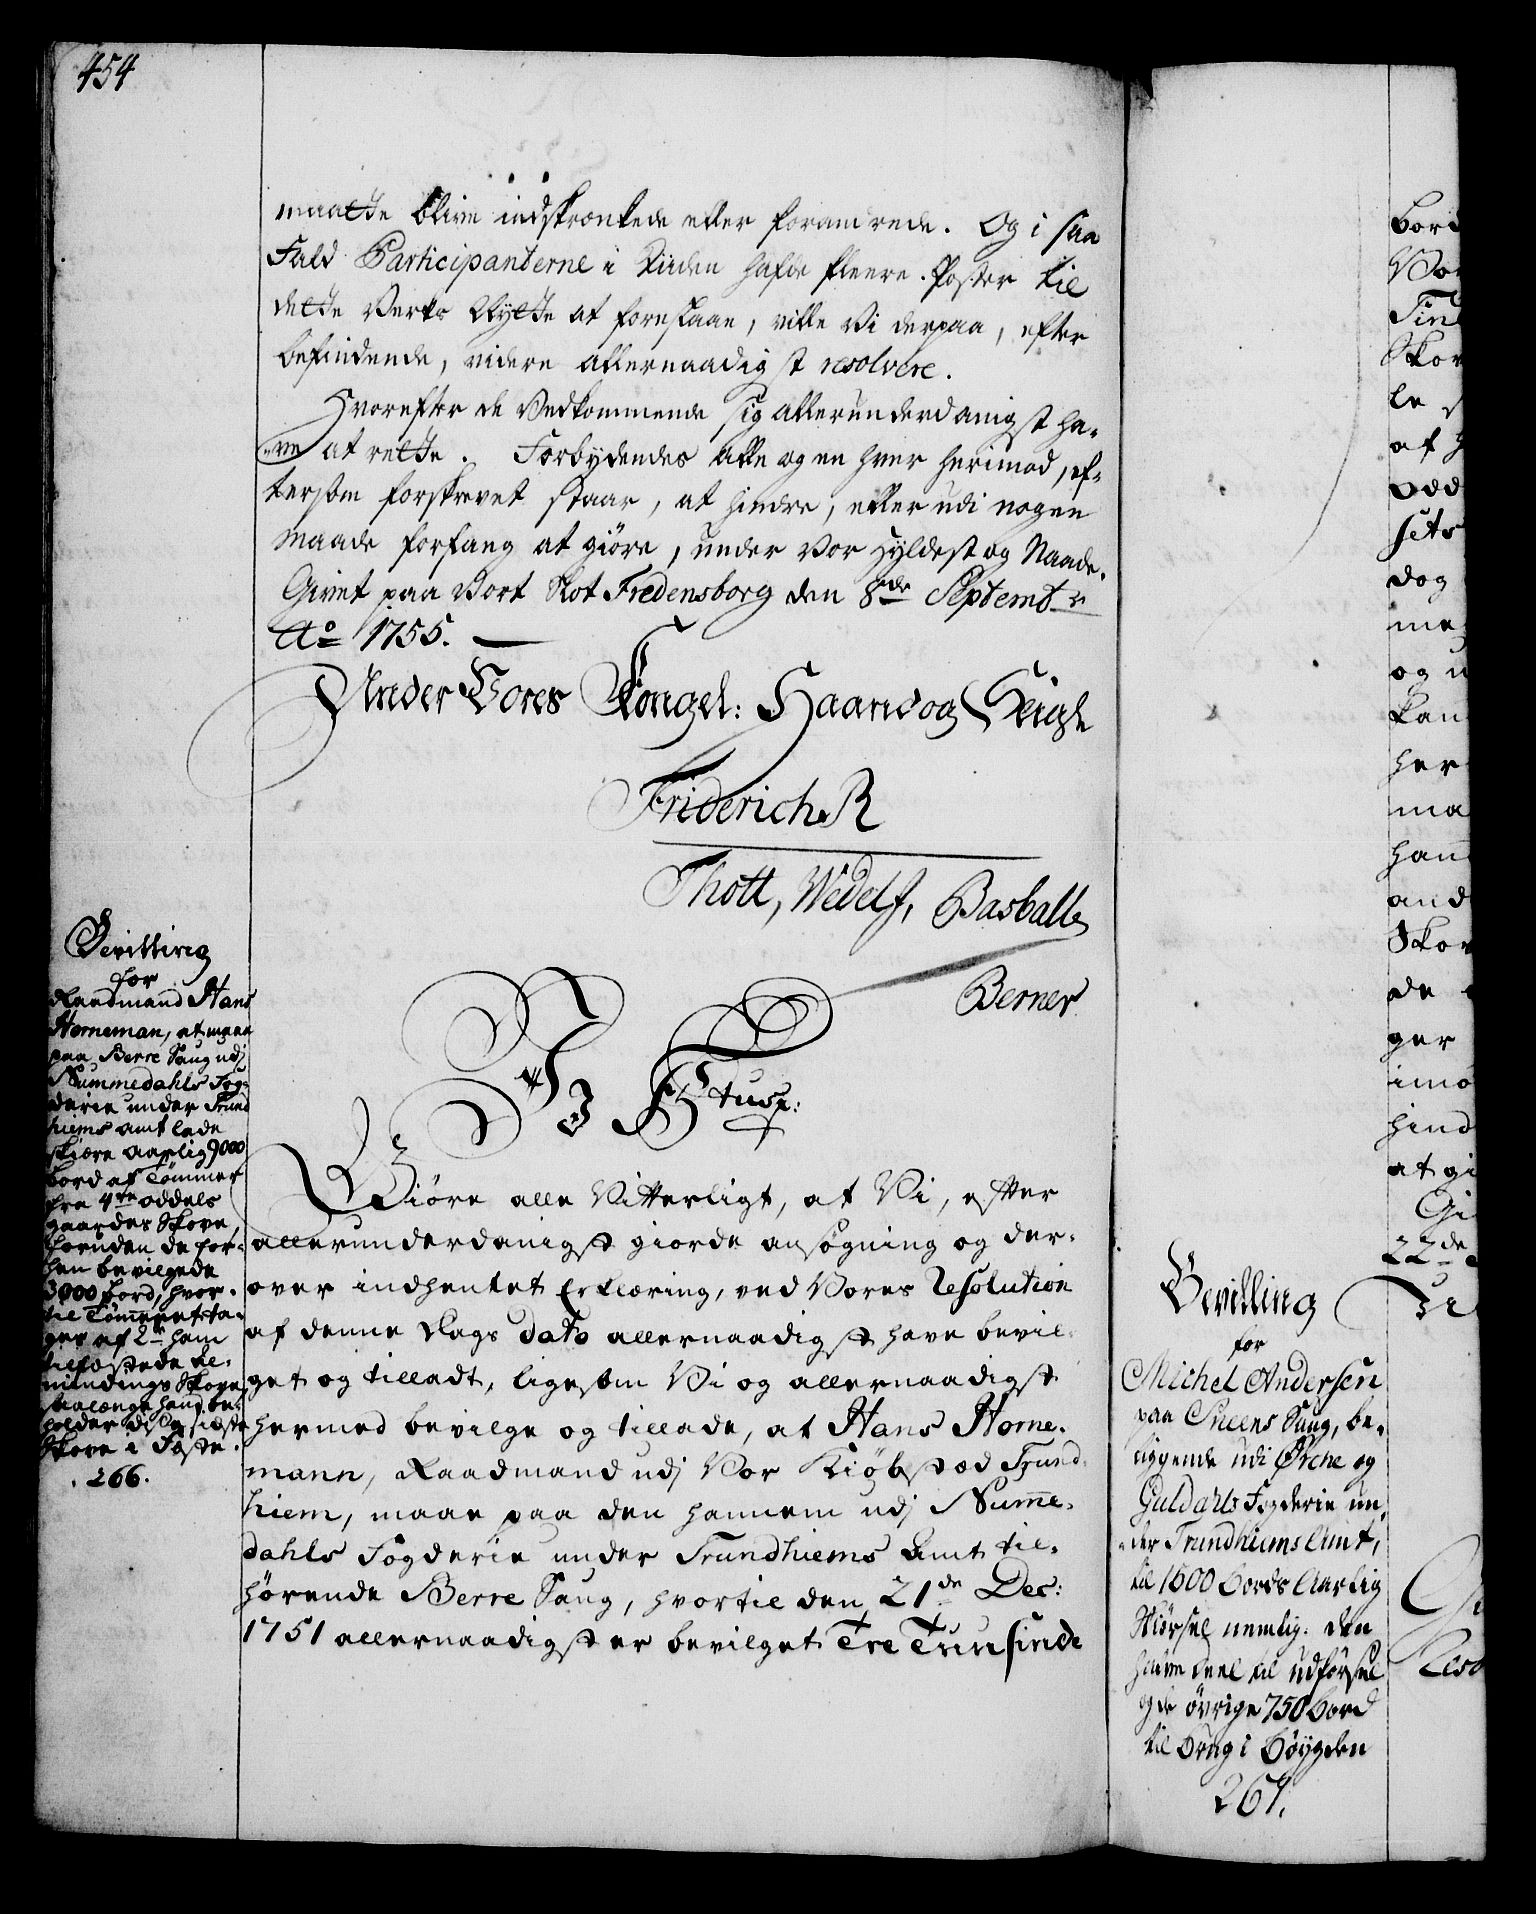 454
maatte blive indskrænkede eller forandrede. Og i saa
Fald Participanterne i Tiiden hafde fleere Poster til
dette Verks Nytte at foreslaae, ville Vi derpaa, efter
befindende, videre allernaadigst resolvere.
Hvorefter de Vedkommende sig allerunderdanigst ha-
ve at rette. Forbydendes Alle og en hver herimod, ef-
tersom forskrevet staar, at hindre, eller udi nogen
Maade forfang at giöre, under Vor Hyldest og Naade.
Givet paa Vort Slot Fredensborg den 8de Septembr
Ao 1755.
Under Vores Kongel: Haand og Seigl
Friderich R
Thott, Wedelf, Basballe
Berner
Bevilling
for
Raadmand Hans
Horneman, at maae
paa Berre Saug udj
Nummedahls Fog-
derie under Trund
hiems Amt lade
skiære aarlig 9000
bord af Tömmer
fra 4re Oddels
gaardes Skove,
foruden de for-
hen bevilgede
3000 bord, hvor-
til Tömmeret ta-
ges af 2de ham
tilfæstede Al-
mindings Skove,
saalænge hand be-
holder disse sidste
Skove i Fæste.
266.
Vi F 5tus p:
Giöre alle Vitterligt, at Vi, efter
allerunderdanigst giorde ansögning og der-
over indhentet Erklæring, ved Vores Resolution
af denne Dags dato allernaadigst have bevil-
get og tilladt, ligesom Vi og allernaadigst
hermed bevilge og tillade, at Hans Horne-
mann, Raadmand udj Vor Kiöbstæd Trund-
hiem, maae paa den hannem udj Numme-
dahls Fogderie under Trundhiems Amt til-
hörende Berre Saug, hvortil den 21de Dec:
1751 allernaadigst er bevilget Tre Tuusinde
Bevilling
for
Michel Andersen
paa Sneens Saug, be-
liggende udi Örche og
Guldahls Fogderie un-
der Trundhiems Amt,
til 1500 bords Aarlig
Skiörsel nemlig: den
halve deel til udförsel
og de övrige 750 bord
til brug i böygden
267.
bord
Vor
Skov
le
af
odd
sets
dog
me
og u
kan
her
ma
hand
and
Skov
de
ger
imo
hind
at gi
Gi
22de